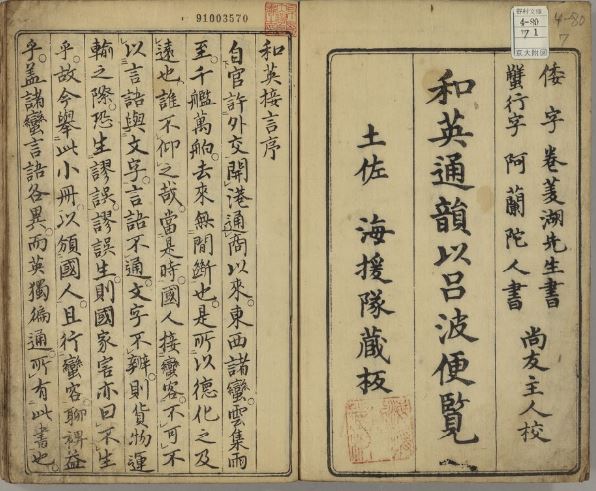 谷村文庫
4-80
ワ 1
京大附圖
4-80
7
倭字 卷菱湖先生書
蟹行字 阿蘭陀人書
尚友主人校
和英通韻以呂波便覧
土佐 海援隊蔵板
91003570
和英接言序
自官許外交開港通商以來東西諸蠻雲集雨
至千艦萬舶去來無間斷也是所以德化之及
遠也誰不仰之哉當是時國人接蠻客不可不
以言語與文字言語不通文字不辨則貨物運
輸之際恐生謬誤謬誤生則國家害亦曰不生
乎故今舉此小冊以頒國人且行蠻客聊裨益
乎蓋諸蠻言語各異而英獨徧通所有此書也